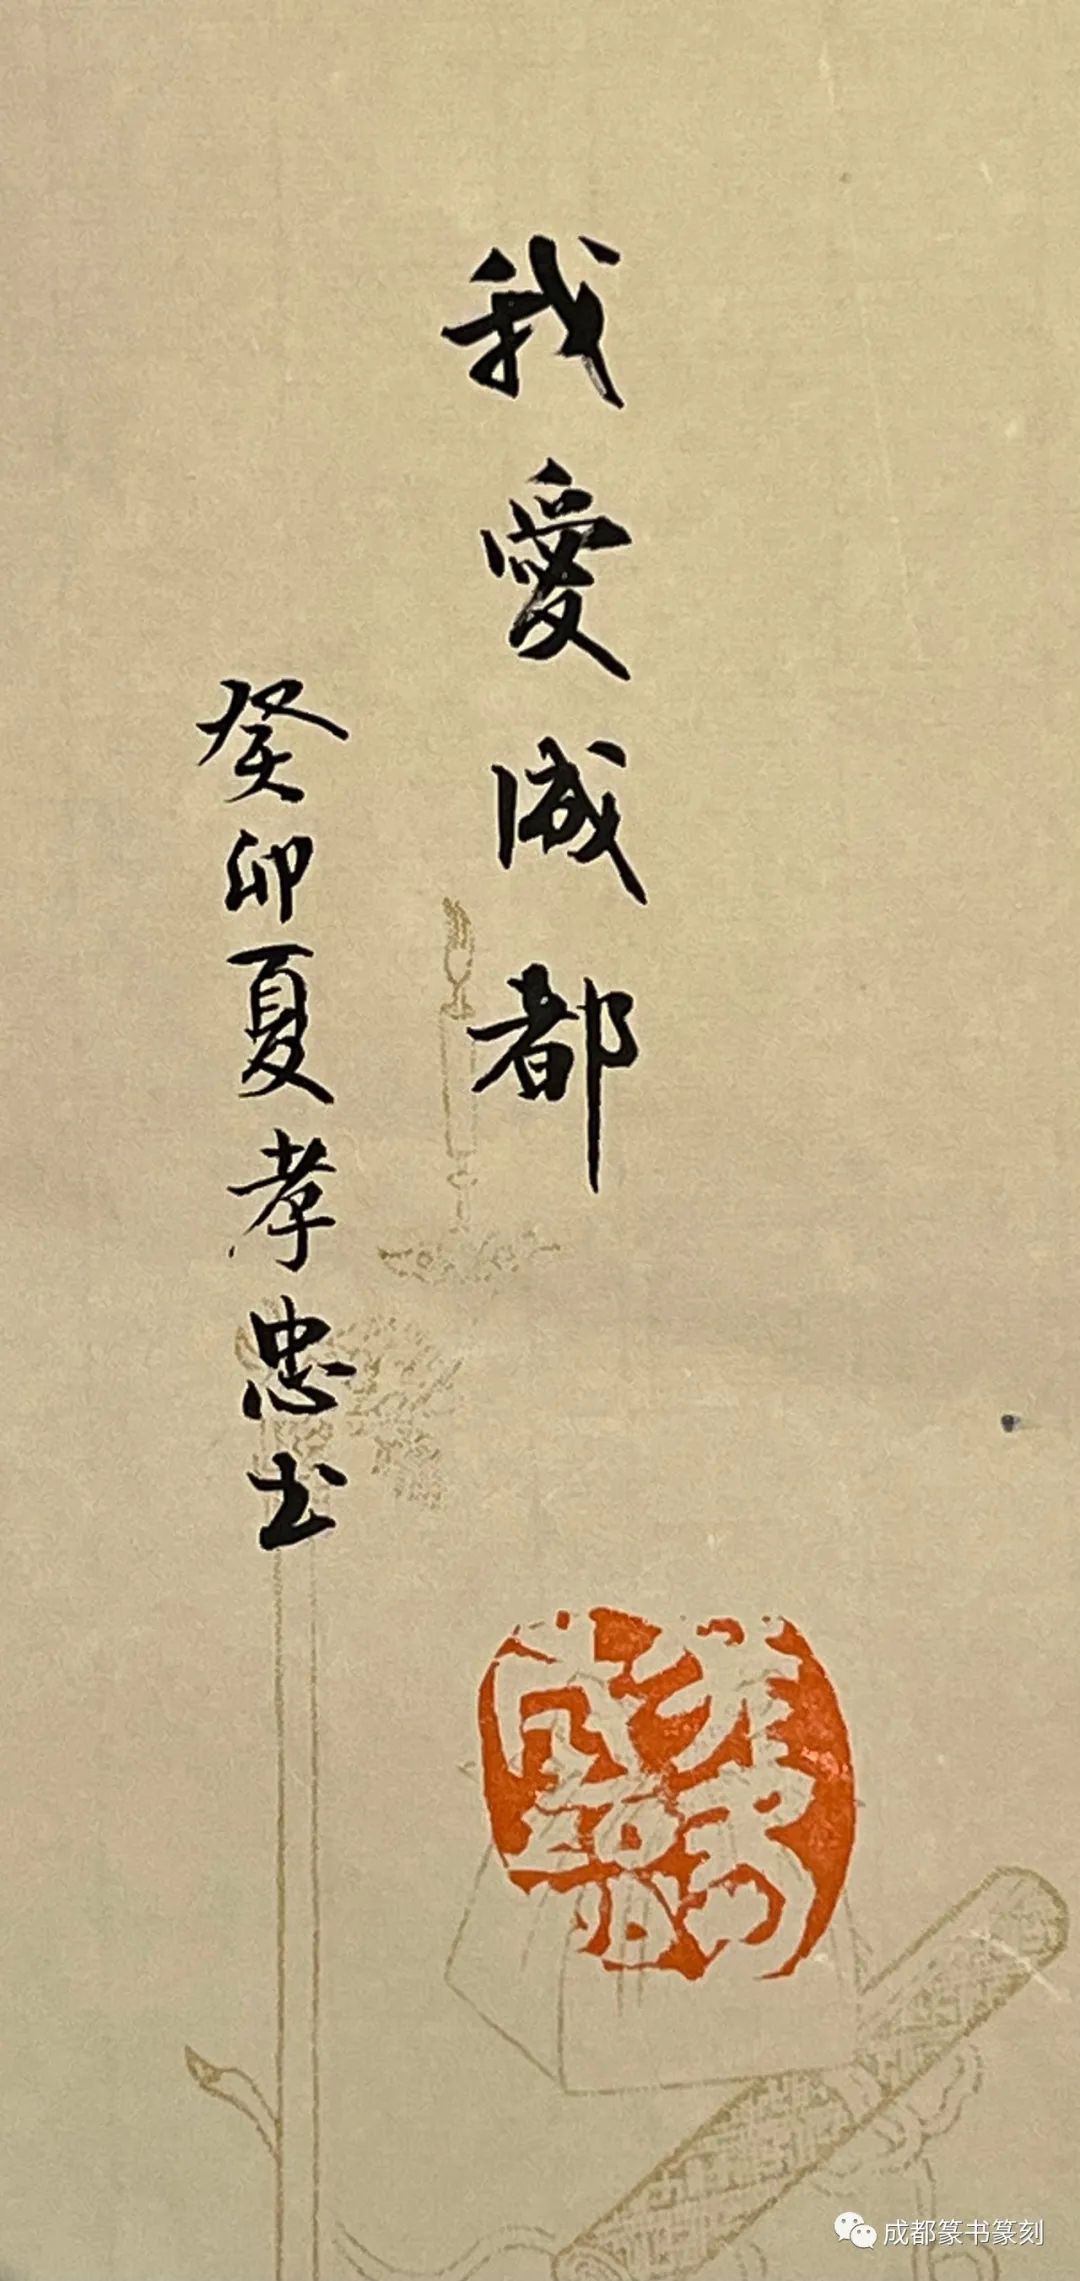 我愛成都
癸卯夏孝忠书
成都篆书篆刻